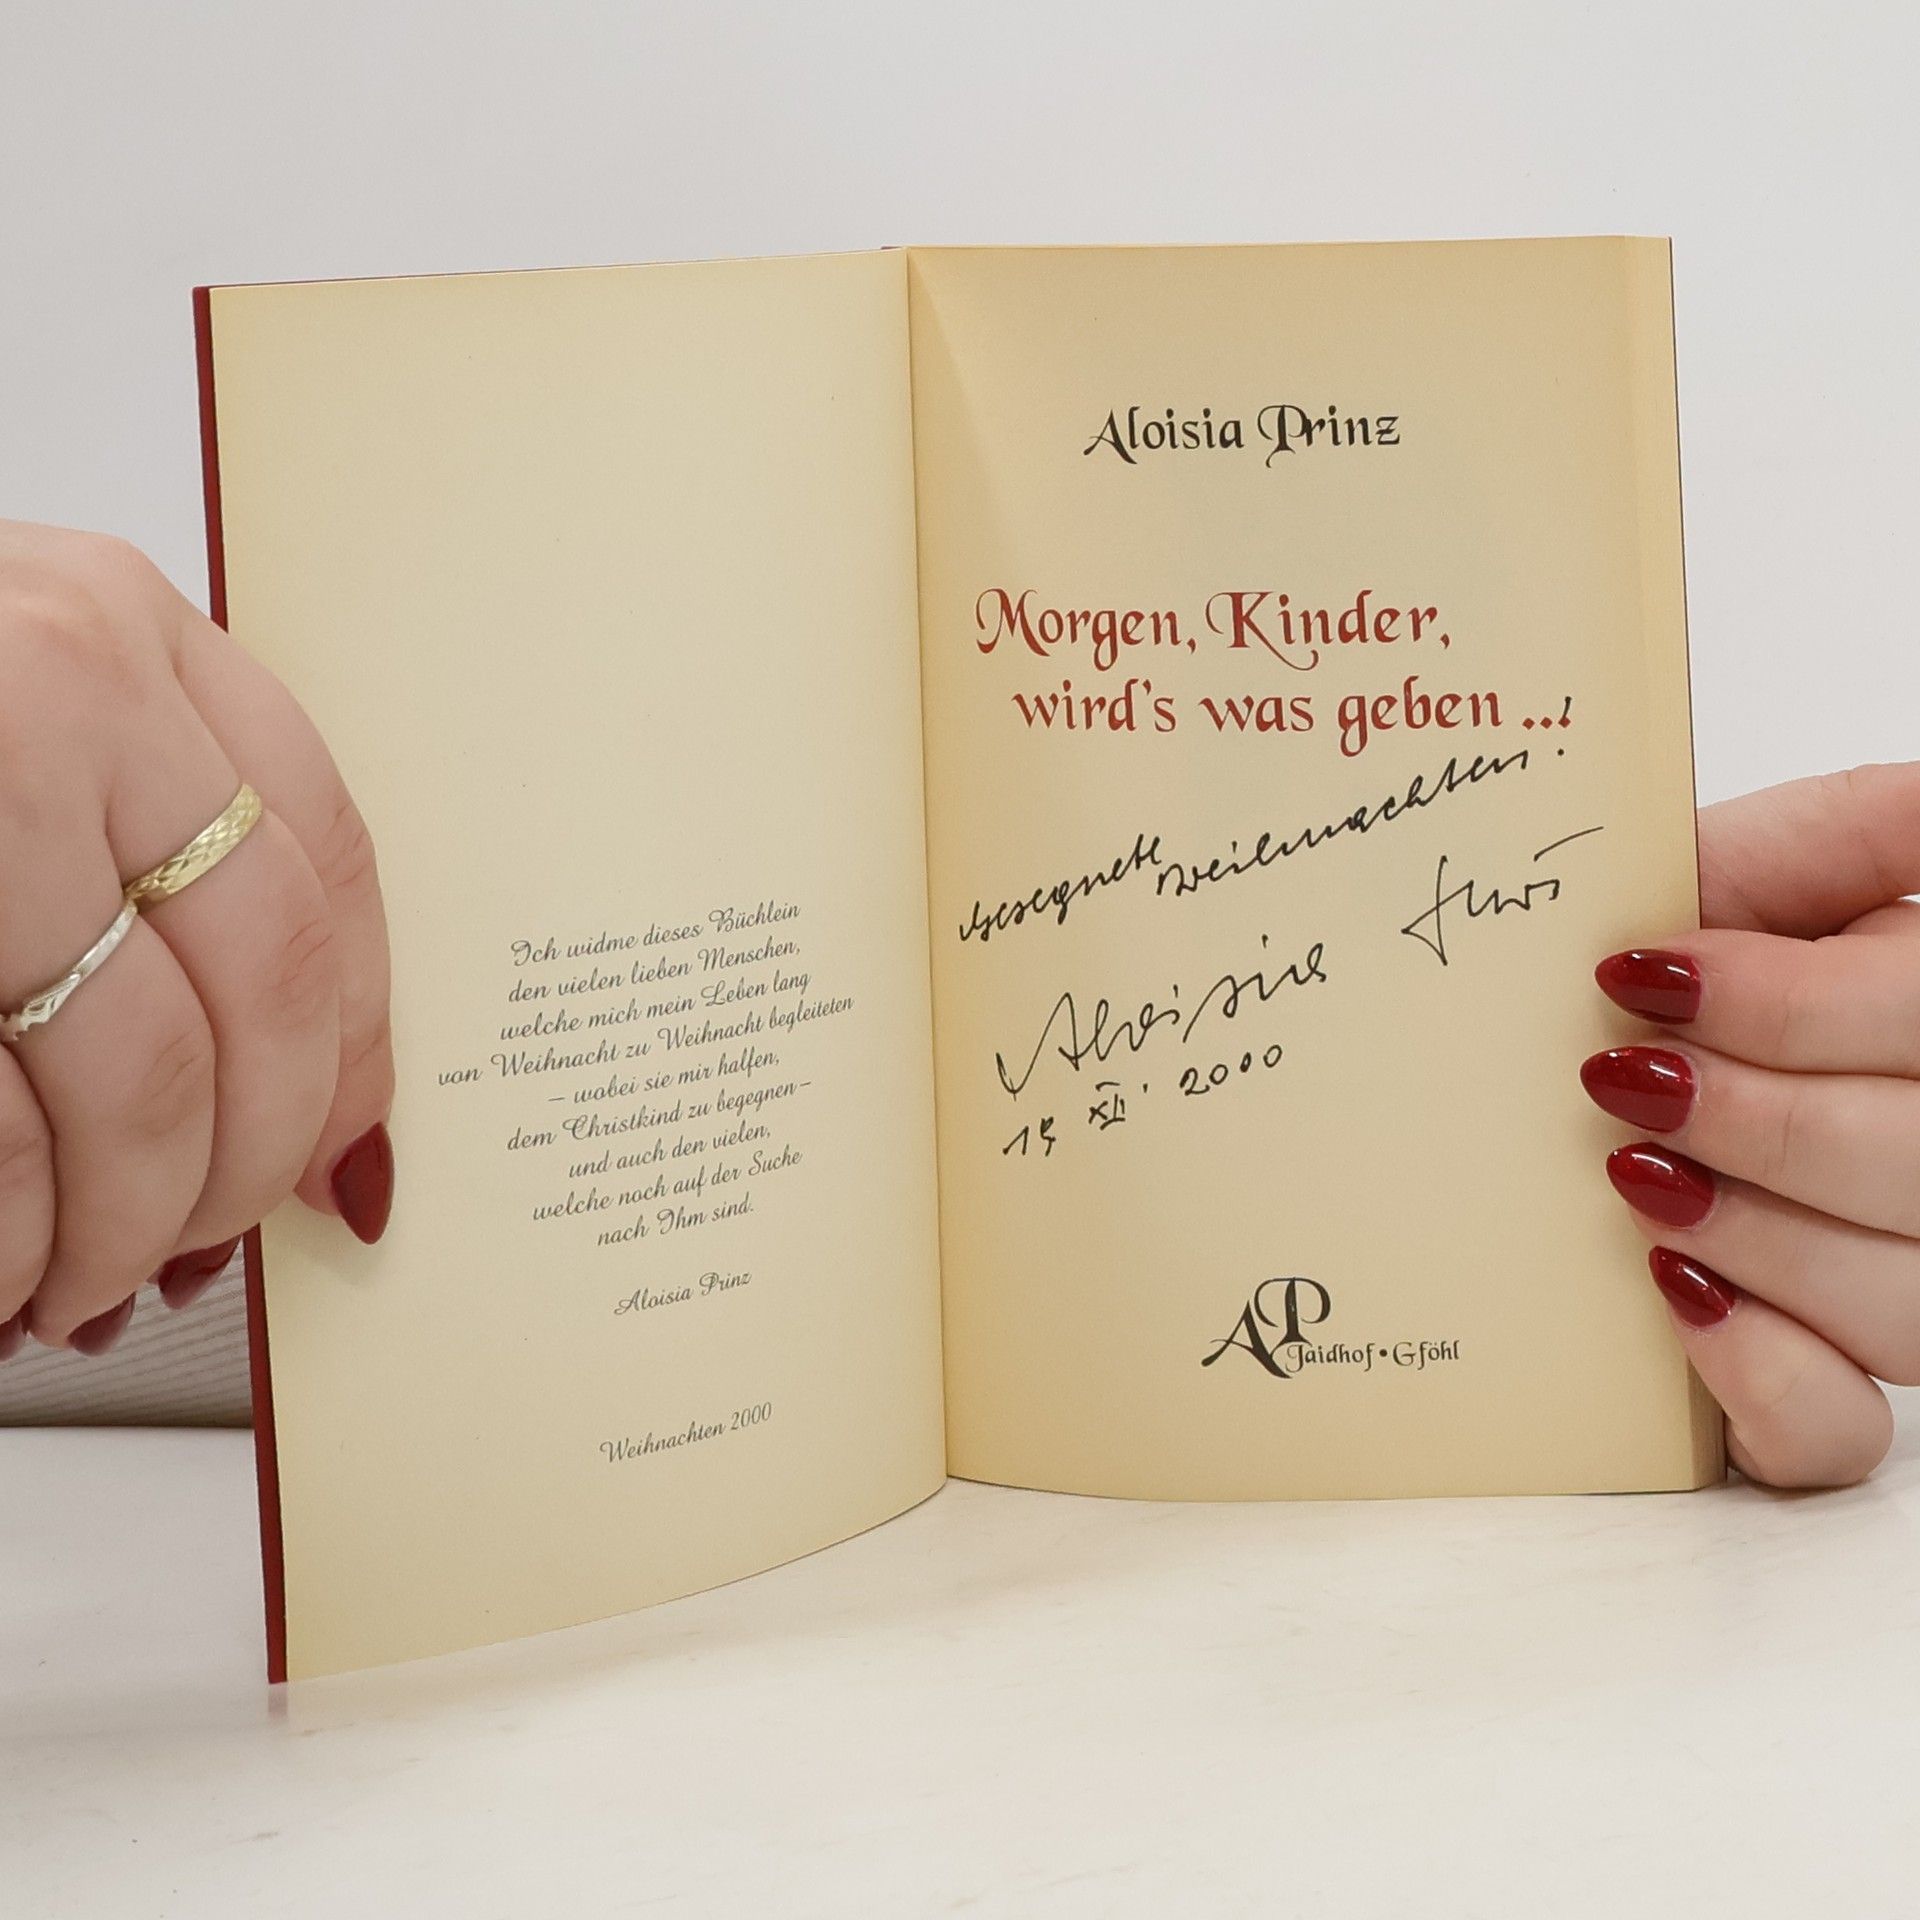 Ich widme dieses Büchlein
den vielen lieben Menschen,
welche mich mein Leben lang
von Weihnacht zu Weihnacht begleiteten
– wobei sie mir halfen,
dem Christkind zu begegnen –
und auch den vielen,
welche noch auf der Suche
nach Ihm sind.
Aloisia Prinz
Weihnachten 2000
Aloisia Prinz
Morgen, Kinder,
wird's was geben ...
Gesegnete Weihnachten!
Aloisia
XII. 2000
AP
Jaidhof • Gföhl